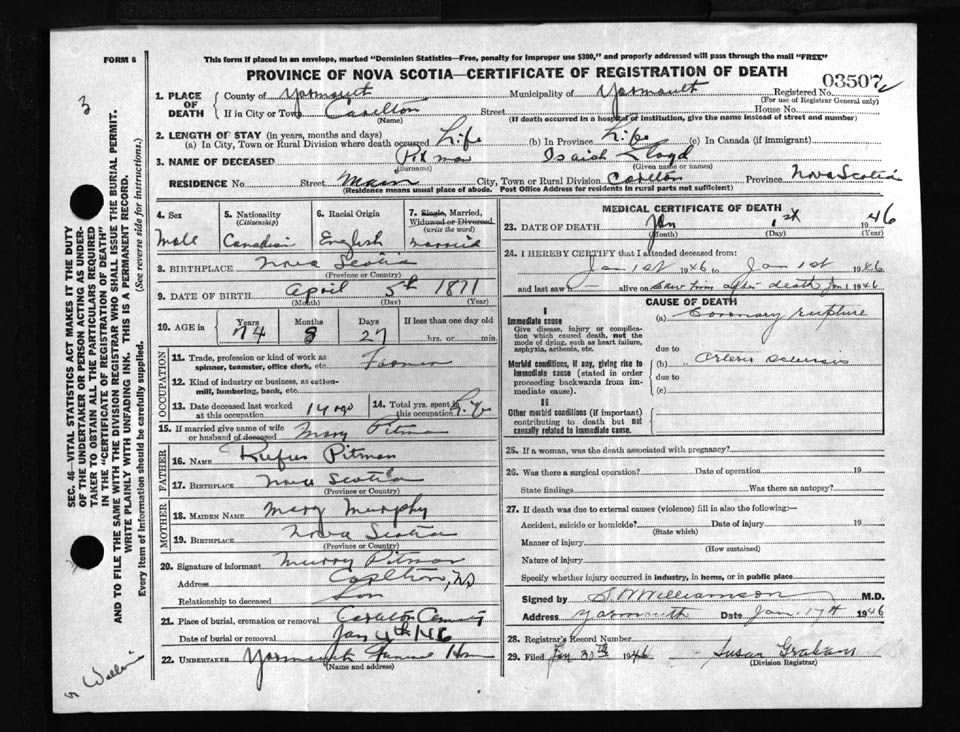 FORM 6
This form if placed in an envelope, marked "Dominion Statistics—Free, penalty for improper use $300," and properly addressed will pass through the mail "FREE"
PROVINCE OF NOVA SCOTIA—CERTIFICATE OF REGISTRATION OF DEATH
03507
1. PLACE OF DEATH County of Yarmouth Municipality of Yarmouth Registered No.
(For use of Registrar General only)
If in City or Town Carlton Street House No.
(Name) (If death occurred in a hospital or institution, give the name instead of street and number)
2. LENGTH OF STAY (in years, months and days)
(a) In City, Town or Rural Division where death occurred Life (b) In Province Life (c) In Canada (if immigrant)
3. NAME OF DECEASED Pitman Isaiah Lloyd
(Surname) (Given name or names)
RESIDENCE No. Street Main City, Town or Rural Division Carlton Province Nova Scotia
(Residence means usual place of abode. Post Office Address for residents in rural parts not sufficient)
4. Sex 5. Nationality (Citizenship) 6. Racial Origin 7. Single, Married, Widowed or Divorced (write the word)
Male Canadian English Married
8. BIRTHPLACE Nova Scotia
(Province or Country)
9. DATE OF BIRTH April 5th 1871
(Month) (Day) (Year)
10. AGE in Years Months Days If less than one day old
74 8 27 hrs. or min.
OCCUPATION
11. Trade, profession or kind of work as spinner, teamster, office clerk, etc. Farmer
12. Kind of industry or business, as cotton-mill, lumbering, bank, etc.
13. Date deceased last worked at this occupation 14 ago 14. Total yrs. spent in this occupation Life
15. If married give name of wife or husband of deceased Mary Pitman
FATHER
16. NAME Rufus Pitman
17. BIRTHPLACE Nova Scotia
(Province or Country)
MOTHER
18. MAIDEN NAME Mary Murphy
19. BIRTHPLACE Nova Scotia
(Province or Country)
20. Signature of informant Murry Pitman
Address Carlton, NS
Relationship to deceased Son
21. Place of burial, cremation or removal Carlton
Date of burial or removal Jan 4th/46
22. UNDERTAKER Yarmouth Funeral Home
(Name and address)
MEDICAL CERTIFICATE OF DEATH
23. DATE OF DEATH Jan 1st 1946
(Month) (Day) (Year)
24. I HEREBY CERTIFY that I attended deceased from:
Jan 1st 1946 to Jan 1st 1946
and last saw h alive on Saw him after death Jan 1 1946
CAUSE OF DEATH
I
Immediate cause (a) Coronary rupture
Give disease, injury or complication which caused death, not the mode of dying, such as heart failure, asphyxia, asthenia, etc.
due to
Morbid conditions, if any, giving rise to immediate cause (stated in order proceeding backwards from immediate cause). (b)
due to
(c)
II
Other morbid conditions (if important) contributing to death but not causally related to immediate cause.
25. If a woman, was the death associated with pregnancy?
26. Was there a surgical operation? Date of operation 19
State findings Was there an autopsy?
27. If death was due to external causes (violence) fill in also the following:—
Accident, suicide or homicide? Date of injury 19
(State which)
Manner of injury
(How sustained)
Nature of injury
Specify whether injury occurred in industry, in home, or in public place
Signed by S W Williamson M.D.
Address Yarmouth Date Jan. 17th 1946
28. Registrar's Record Number
29. Filed Jan 30th 1946 Susan Graham
(Division Registrar)
SEC. 46—VITAL STATISTICS ACT MAKES IT THE DUTY
OF THE UNDERTAKER OR PERSON ACTING AS UNDER-
TAKER TO OBTAIN ALL THE PARTICULARS REQUIRED
IN THE "CERTIFICATE OF REGISTRATION OF DEATH"
AND TO FILE THE SAME WITH THE DIVISION REGISTRAR WHO SHALL ISSUE THE BURIAL PERMIT.
WRITE PLAINLY WITH UNFADING INK. THIS IS A PERMANENT RECORD.
Every item of Information should be carefully supplied. (See reverse side for instructions.)
3